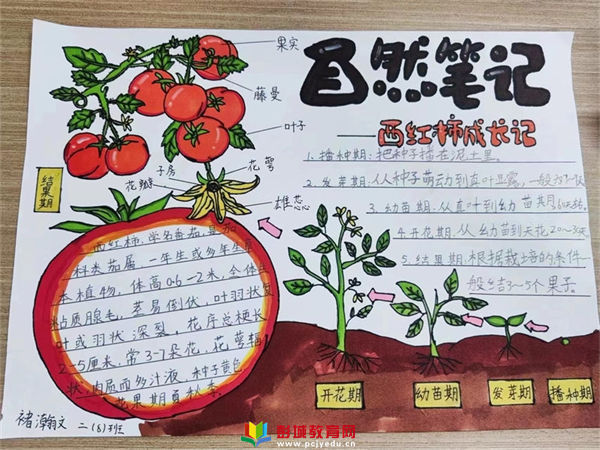 自然笔记
——西红柿成长记
果实
藤曼
叶子
花萼
子房
花瓣
雄蕊
结果期
1.播种期:把种子播在泥土里。
2.发芽期:从种子萌动到真叶显露,一般为7-9天
3.幼苗期:从真叶到幼苗期
4.开花期:从幼苗到天花20~30天
5.结果期:根据栽培的条件一
般会结3~5个果子
西红柿,学名番茄,是茄
科类茄属,一年生或多年生草
本植物,体高0.6-2米,全体生
粘质腺毛,茎易倒伏,叶羽状复
叶或羽状深裂,花序总梗长
2-5厘米,常3-7朵花,花萼辐
状,肉质而多汁液,种子黄色
花果期夏秋季。
开花期
幼苗期
发芽期
播种期
褚瀚文 二(8)班
彭城教育网
www.pcjyedu.cn